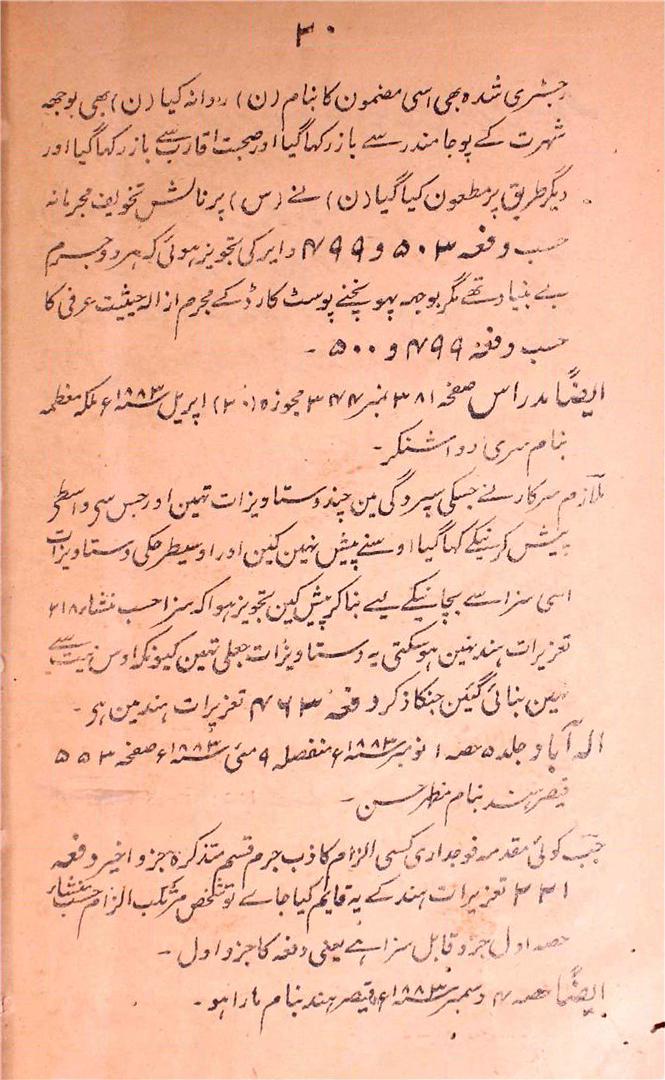 ۳۰
رجسٹری شدہ بھی اسی مضمون کا بنام (ن) روانہ کیا (ن) بھی بوجھہ
شہرت کے پوجا مندر سے باز رکھا گیا اور صحبت اقارب سے باز رکھا گیا اور
دیگر طریق پر مطعون کیا گیا (ن) نے (س) پر نالش تخویف مجرمانہ
حسب دفعہ ۵۰۳ و ۴۹۹ دایر کی تجویز ہوئی کہ ہر دو جرم
بے بنیاد تھے مگر بوجہ پہونچنے پوسٹ کارڈ کے مجرم ازالہ حیثیت عرفی کا
حسب دفعہ ۴۹۹ و ۵۰۰ -
ایضاً مدراس صفحہ ۳۸۱ نمبر ۳۴۴ مجوزہ (۳۰) اپریل سنہ ۱۸۸۳ء ملکہ معظمہ
بنام سری
ملازم سرکار نے جسکی سپردگی مین چند دستاویزات تھین اور جس سی واسطی
پیش کرنیکے کہا گیا اوسنے پیش نہین کین اور اوسیطرحکی دستاویزات
اسی سزا سے بچانیکے لیے بنا کر پیش کین تجویز ہوا کہ سزا حسب منشاء ۲۱۸
تعزیرات ہند نہین ہو سکتی یہ دستاویزات جعلی نتھین کیونکہ اوس نیت سے
نہین بنائی گیئن جنکا ذکر دفعہ ۴۶۳ تعزیرات ہند مین ہی -
الہ آباد جلد ۵ حصہ ۱۰ نومبر سنہ ۱۸۸۳ء منفصلہ ۹ مئی سنہ ۱۸۸۳ء صفحہ ۵۵۳
قیصر ہند بنام مظہر حسن -
جب کوئی مقدمہ فوجداری کسی الزام کاذب جرم قسم متذکرہ جزو اخیر دفعہ
۲۱۱ تعزیرات ہند کے یہ قایم کیا جاے تو شخص مرتکب الزام حسب منشاء
حصہ اول جزو قابل سزا ہے یعنی دفعہ کا جزو اول -
ایضاً حصہ ۴ دسمبر سنہ ۱۸۸۳ء قیصر ہند بنام